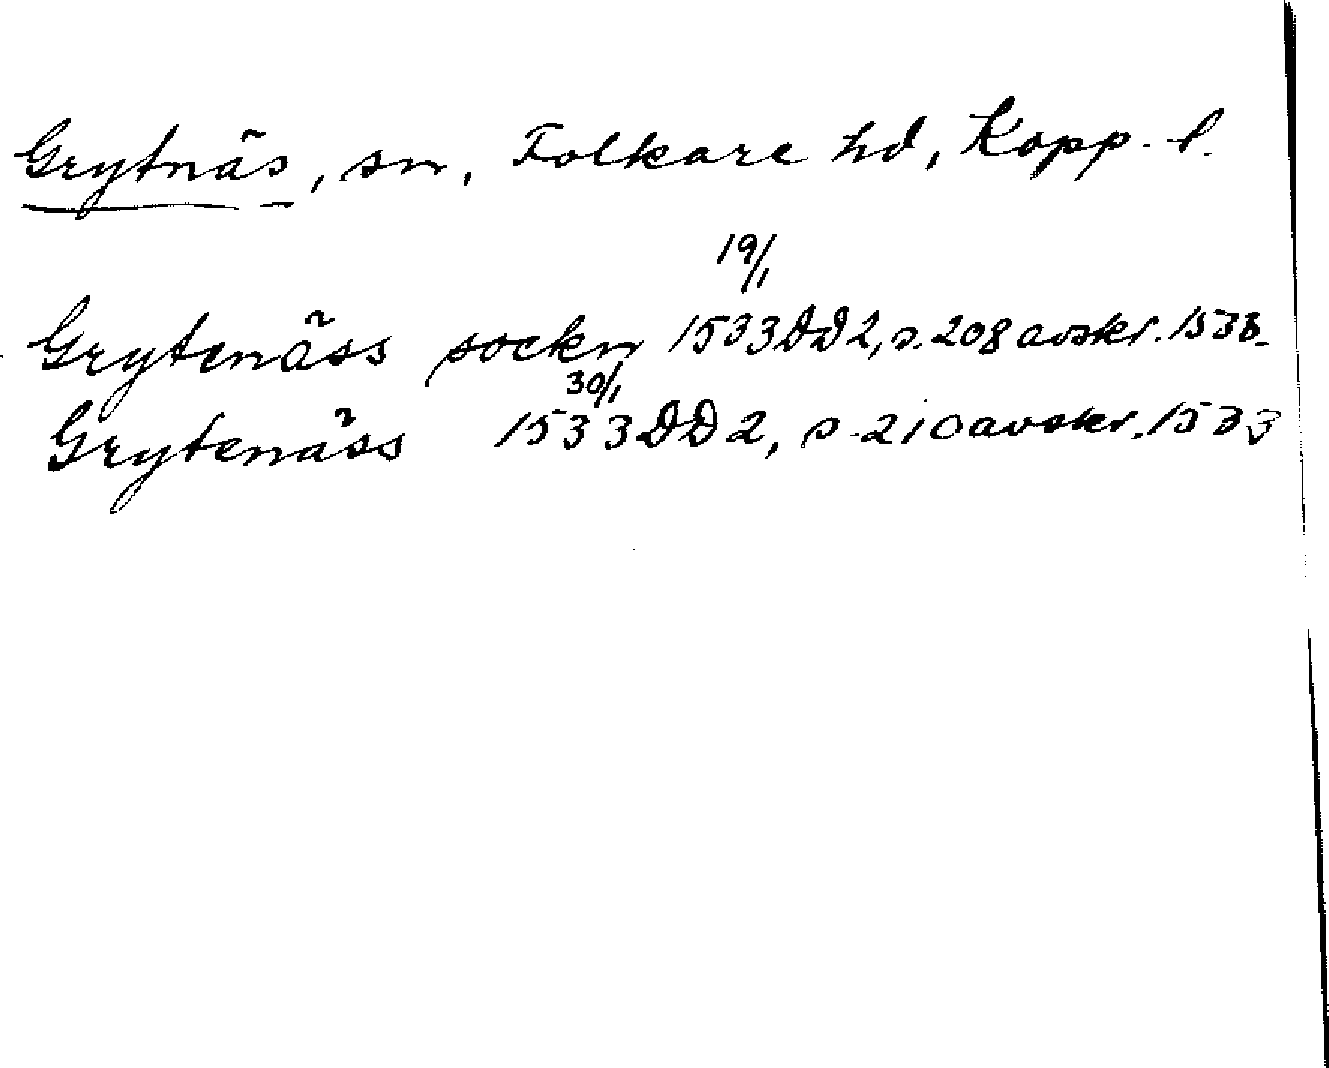 Grytnäs, sn, Folkare hd, Kopp. l.
19/1
Grytenäss sockn 1533 DD2, s. 208 avskr. 1533
30/1
Grytenäss 1533 DD 2, s. 210 avskr. 1533